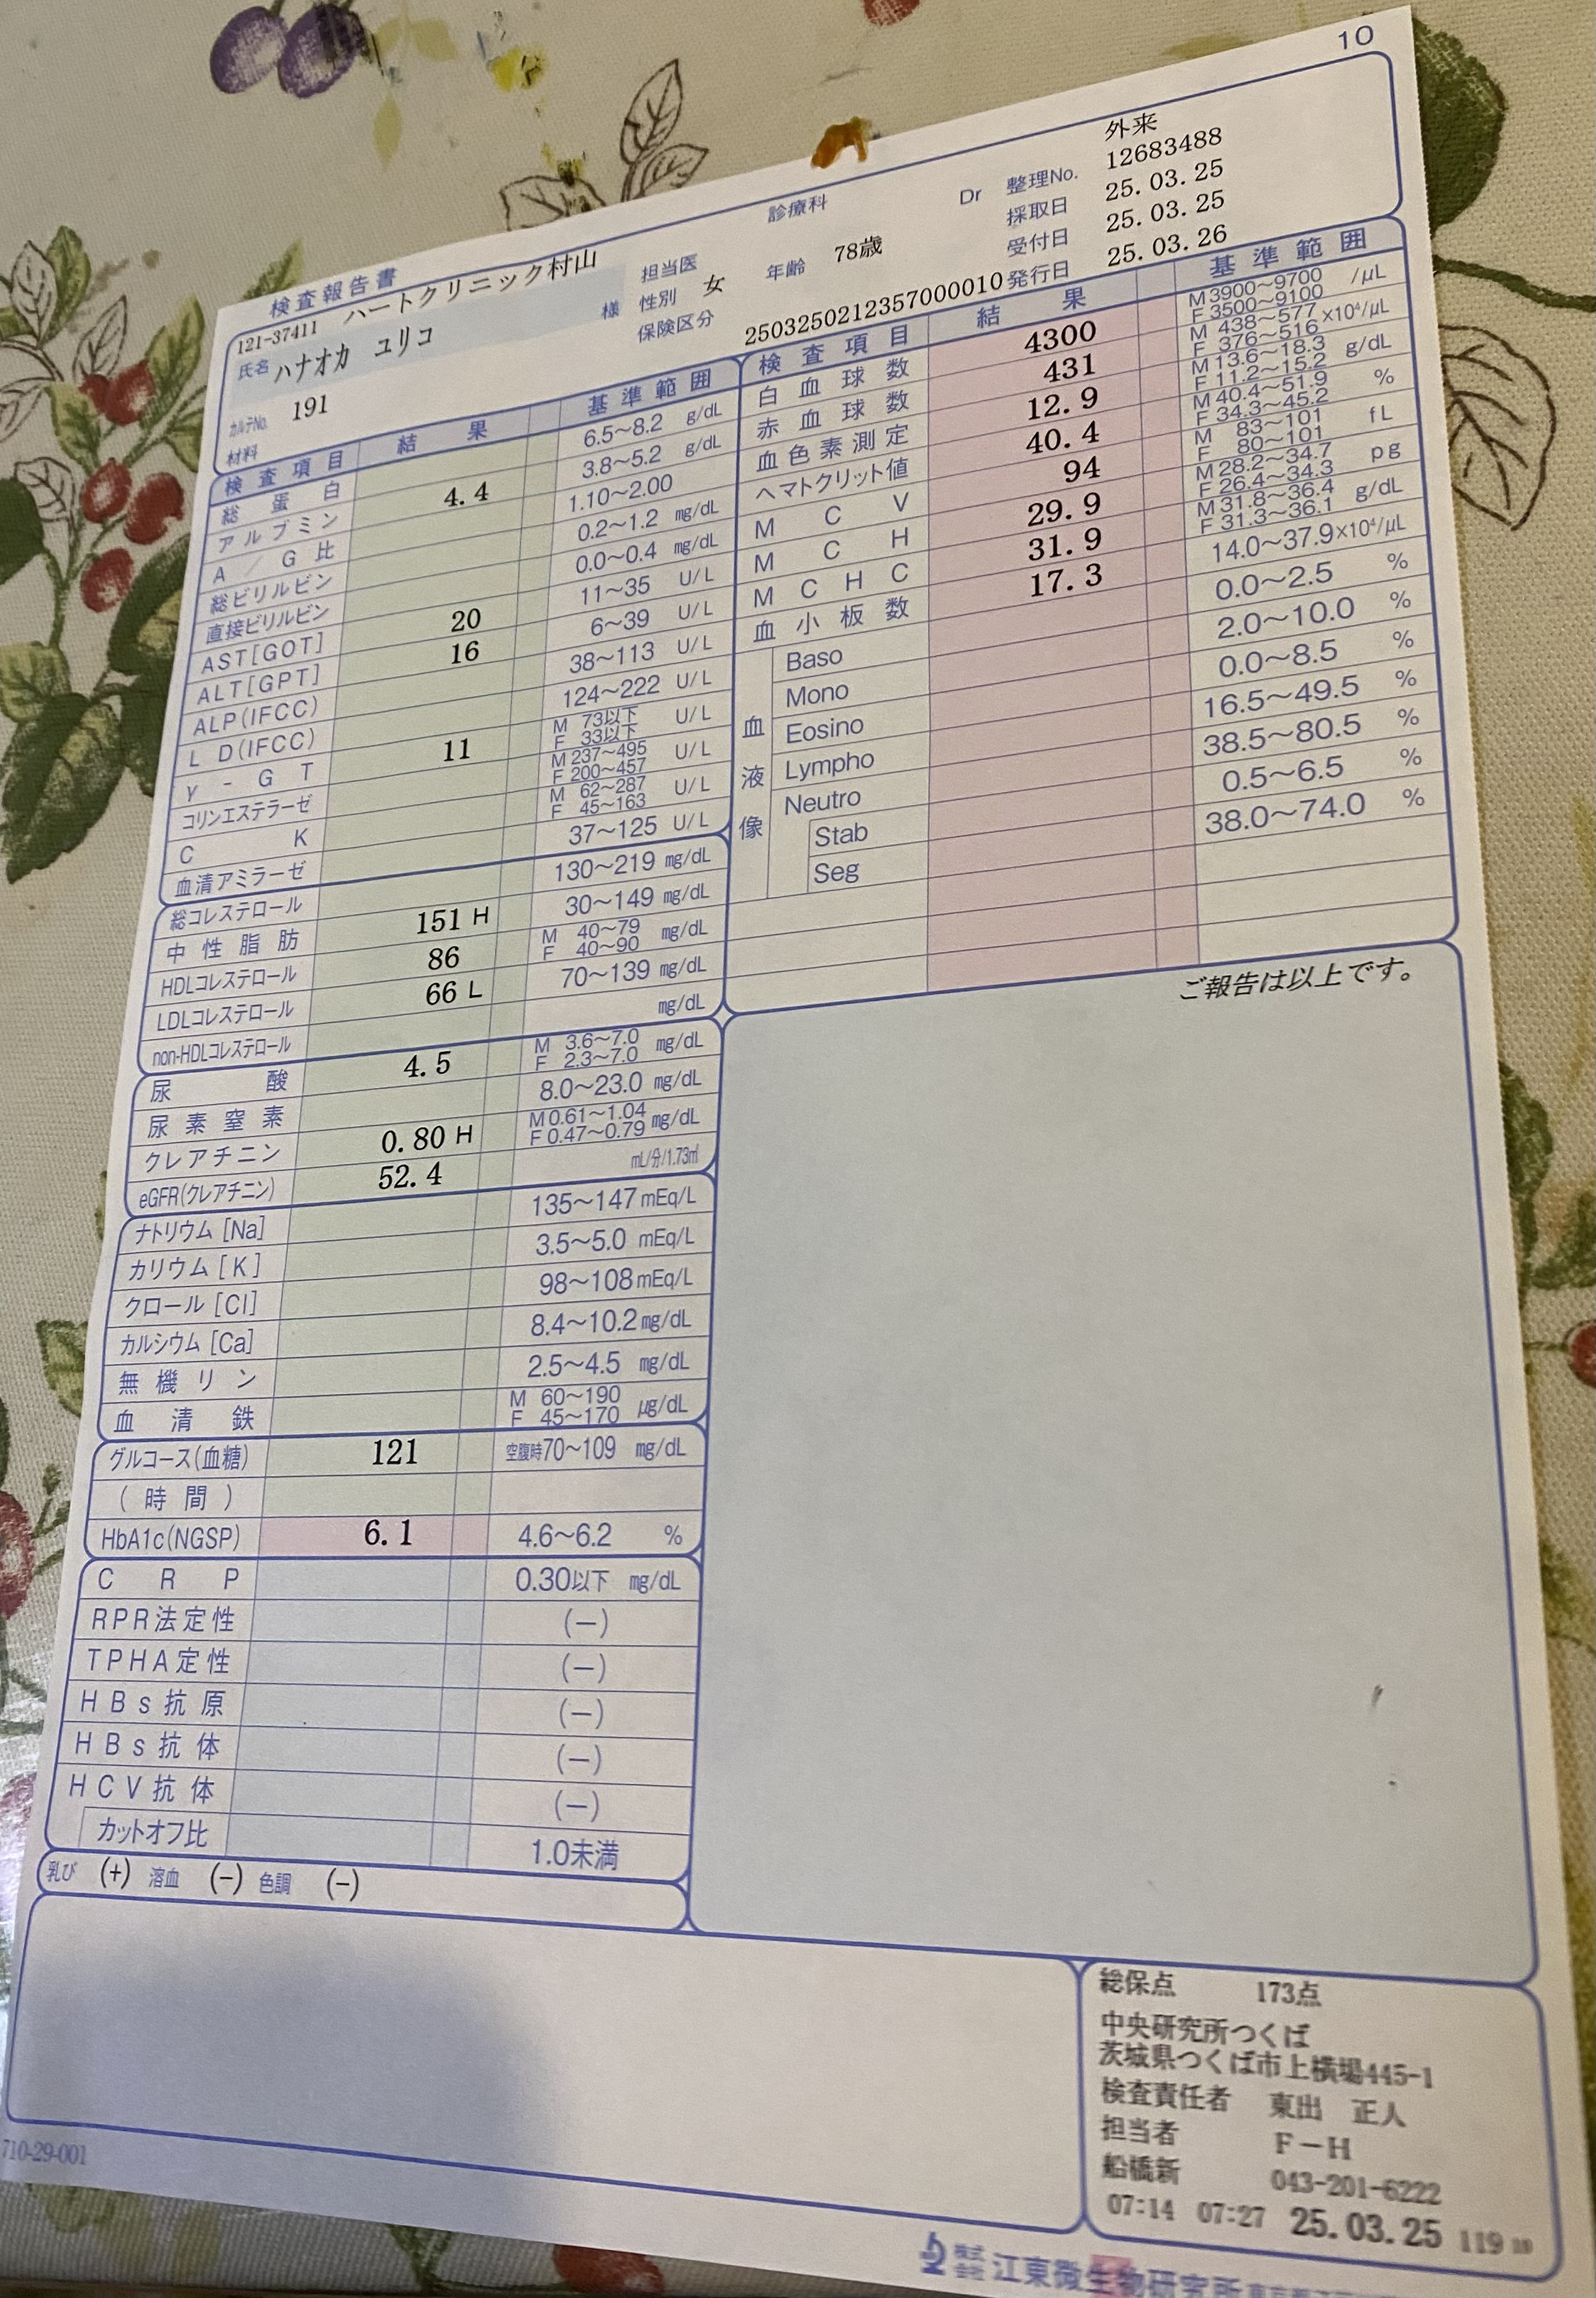 10
検査報告書
121-37411 ハートクリニック村山
氏名 ハナオカ ユリコ 様
カルテNo. 191
材料
担当医
性別 女 年齢 78歳
保険区分
診療科
Dr
外来
整理No. 12683488
採取日 25.03.25
受付日 25.03.25
2503250212357000010 発行日 25.03.26
検査項目 結果 基準範囲
総蛋白 6.5〜8.2 g/dL
アルブミン 4.4 3.8〜5.2 g/dL
A/G比 1.10〜2.00
総ビリルビン 0.2〜1.2 mg/dL
直接ビリルビン 0.0〜0.4 mg/dL
AST[GOT] 20 11〜35 U/L
ALT[GPT] 16 6〜39 U/L
ALP(IFCC) 38〜113 U/L
LD(IFCC) 124〜222 U/L
γ-GT 11 M 73以下 F 33以下 U/L
コリンエステラーゼ M 237〜495 F 200〜457 U/L
CK M 62〜287 F 45〜163 U/L
血清アミラーゼ 37〜125 U/L
総コレステロール 130〜219 mg/dL
中性脂肪 151 H 30〜149 mg/dL
HDLコレステロール 86 M 40〜79 F 40〜90 mg/dL
LDLコレステロール 66 L 70〜139 mg/dL
non-HDLコレステロール mg/dL
尿酸 4.5 M 3.6〜7.0 F 2.3〜7.0 mg/dL
尿素窒素 8.0〜23.0 mg/dL
クレアチニン 0.80 H M 0.61〜1.04 F 0.47〜0.79 mg/dL
eGFR(クレアチニン) 52.4 mL/分/1.73㎡
ナトリウム[Na] 135〜147 mEq/L
カリウム[K] 3.5〜5.0 mEq/L
クロール[Cl] 98〜108 mEq/L
カルシウム[Ca] 8.4〜10.2 mg/dL
無機リン 2.5〜4.5 mg/dL
血清鉄 M 60〜190 F 45〜170 μg/dL
グルコース(血糖) 121 空腹時70〜109 mg/dL
(時間)
HbA1c(NGSP) 6.1 4.6〜6.2 %
CRP 0.30以下 mg/dL
RPR法定性 (−)
TPHA定性 (−)
HBs抗原 (−)
HBs抗体 (−)
HCV抗体 (−)
カットオフ比 1.0未満
乳び (+) 溶血 (−) 色調 (−)
検査項目 結果 基準範囲
白血球数 4300 M 3900〜9700 F 3500〜9100 /μL
赤血球数 431 M 438〜577 F 376〜516 ×10⁴/μL
血色素測定 12.9 M 13.6〜18.3 F 11.2〜15.2 g/dL
ヘマトクリット値 40.4 M 40.4〜51.9 F 34.3〜45.2 %
MCV 94 M 83〜101 F 80〜101 fL
MCH 29.9 M 28.2〜34.7 F 26.4〜34.3 pg
MCHC 31.9 M 31.8〜36.4 F 31.3〜36.1 g/dL
血小板数 17.3 14.0〜37.9 ×10⁴/μL
血液像
Baso 0.0〜2.5 %
Mono 2.0〜10.0 %
Eosino 0.0〜8.5 %
Lympho 16.5〜49.5 %
Neutro 38.5〜80.5 %
Stab 0.5〜6.5 %
Seg 38.0〜74.0 %
ご報告は以上です。
総保点 173点
中央研究所つくば
茨城県つくば市上横場445-1
検査責任者 東出 正人
担当者 F−H
船橋新 043-201-6222
07:14 07:27 25.03.25 119 10
710-29-001
株式会社 江東微生物研究所